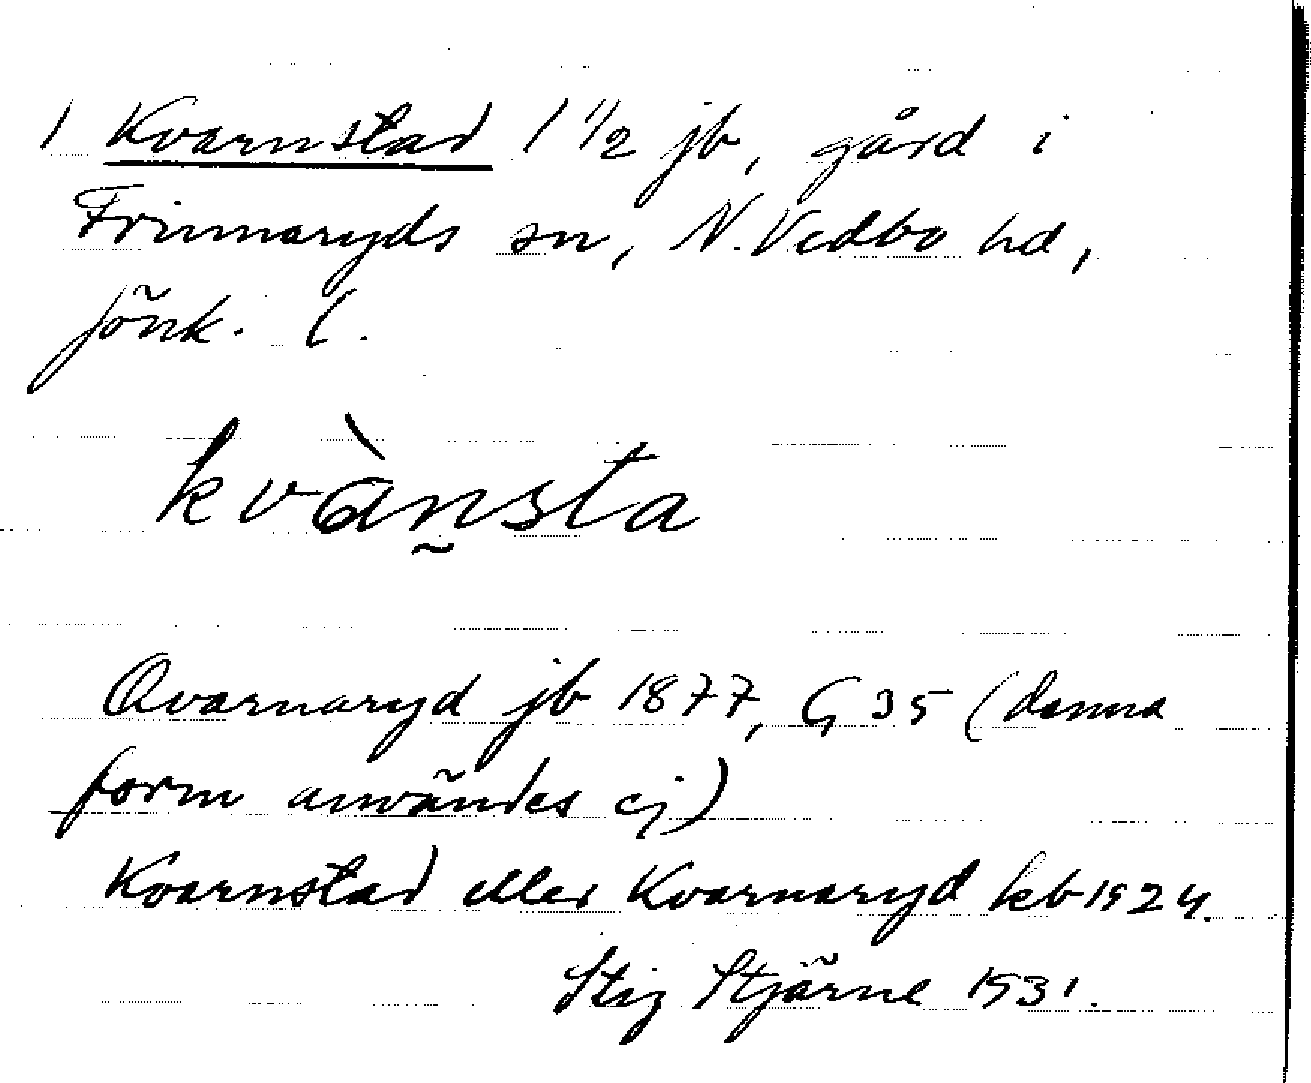 1 Kvarnstad 1 1/2 jb, gård i
Frinnaryds sn, N. Vedbo hd,
Jönk. l.
kvàn̰sta
Qvarnaryd jb 1877, G 35 (denna
form användes ej)
Kvarnstad eller Kvarnaryd kb 1924.
Stig Stjärne 1931.